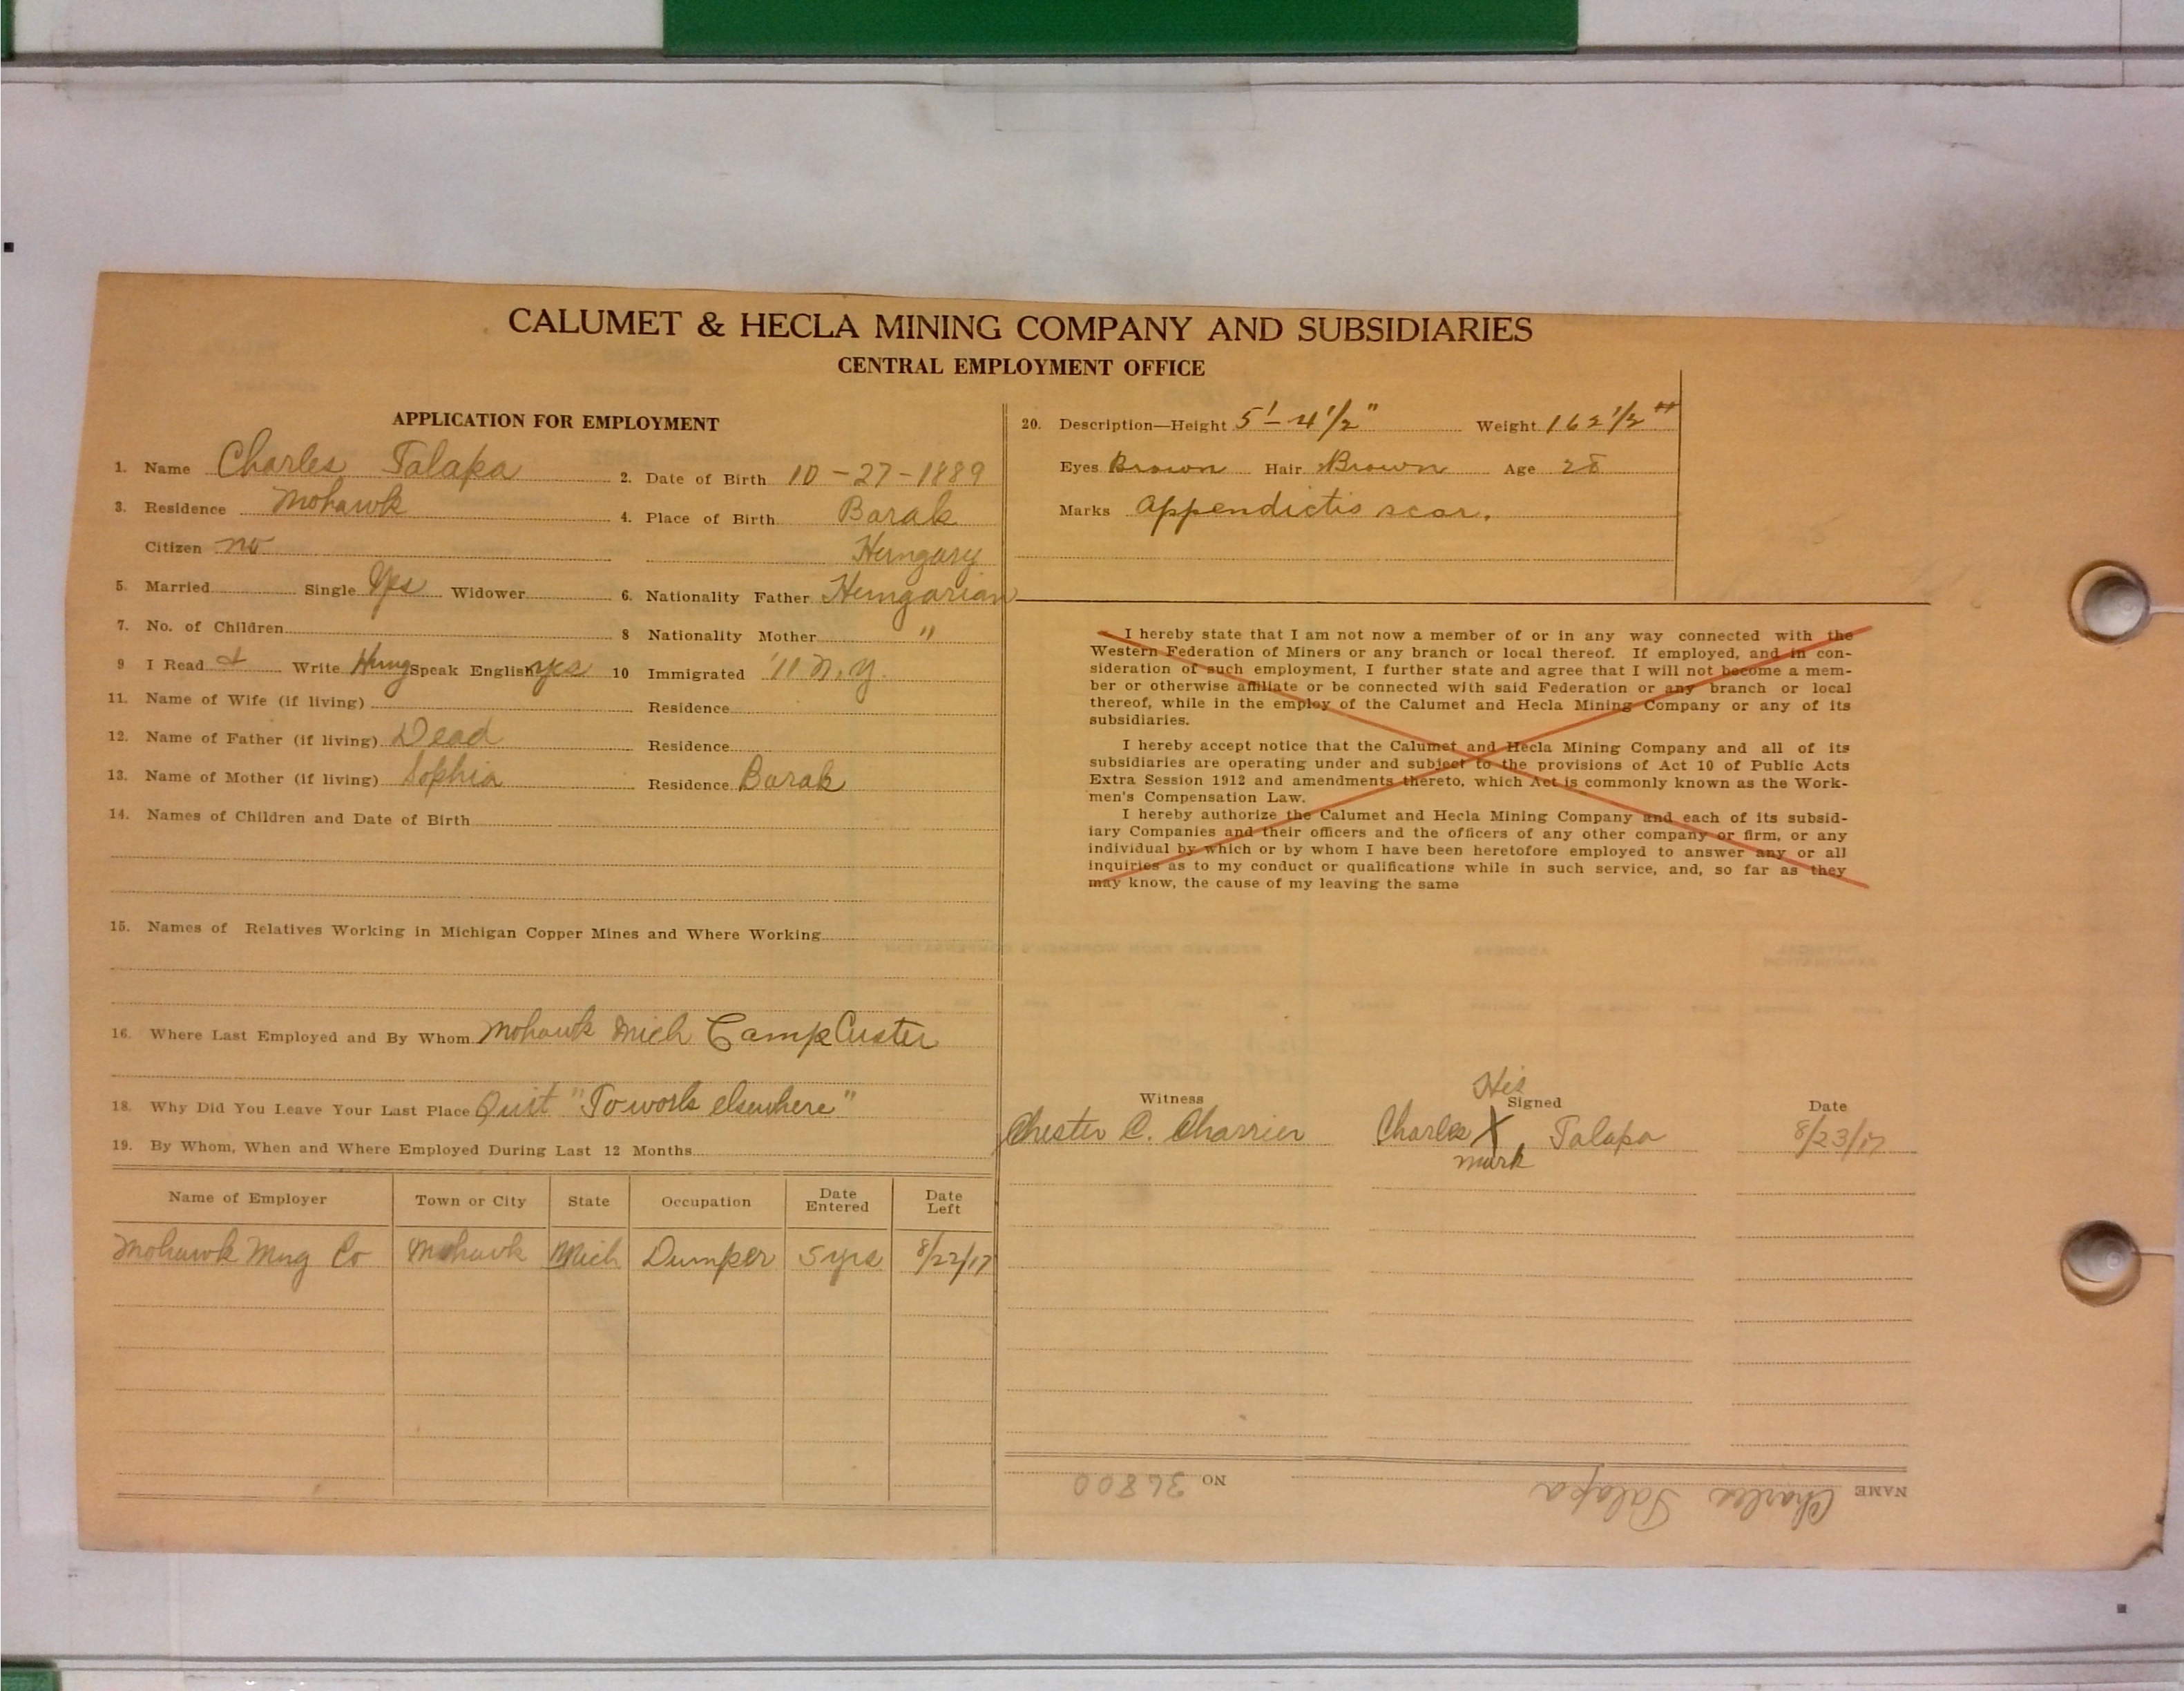 CALUMET & HECLA MINING COMPANY AND SUBSIDIARIES
CENTRAL EMPLOYMENT OFFICE
APPLICATION FOR EMPLOYMENT
1. Name Charles Talapa 2. Date of Birth 10-27-1889
3. Residence Mohawk 4. Place of Birth Barak
Citizen no Hungary
5. Married Single Yes Widower 6. Nationality Father Hungarian
7. No. of Children 8 Nationality Mother "
9 I Read & Write Hung Speak English yes 10 Immigrated '11 N.Y.
11. Name of Wife (if living) Residence
12. Name of Father (if living) Dead Residence
13. Name of Mother (if living) Sophia Residence Barak
14. Names of Children and Date of Birth
15. Names of Relatives Working in Michigan Copper Mines and Where Working
16. Where Last Employed and By Whom Mohawk Mich Camp Custer
18. Why Did You Leave Your Last Place Quit "To work elsewhere"
19. By Whom, When and Where Employed During Last 12 Months
Name of Employer Town or City State Occupation Date Entered Date Left
Mohawk Mng Co Mohawk Mich Dumper 5 yrs 8/22/17
20. Description—Height 5'-4 1/2" Weight 162 1/2 "
Eyes Brown Hair Brown Age 28
Marks appendictis scar.
I hereby state that I am not now a member of or in any way connected with the
Western Federation of Miners or any branch or local thereof. If employed, and in con-
sideration of such employment, I further state and agree that I will not become a mem-
ber or otherwise affiliate or be connected with said Federation or any branch or local
thereof, while in the employ of the Calumet and Hecla Mining Company or any of its
subsidiaries.
I hereby accept notice that the Calumet and Hecla Mining Company and all of its
subsidiaries are operating under and subject to the provisions of Act 10 of Public Acts
Extra Session 1912 and amendments thereto, which Act is commonly known as the Work-
men's Compensation Law.
I hereby authorize the Calumet and Hecla Mining Company and each of its subsid-
iary Companies and their officers and the officers of any other company or firm, or any
individual by which or by whom I have been heretofore employed to answer any or all
inquiries as to my conduct or qualifications while in such service, and, so far as they
may know, the cause of my leaving the same
His
Witness Signed Date
Chester C. Charrier Charles X Talapa 8/23/17
mark
NAME Charles Talapa NO 36800